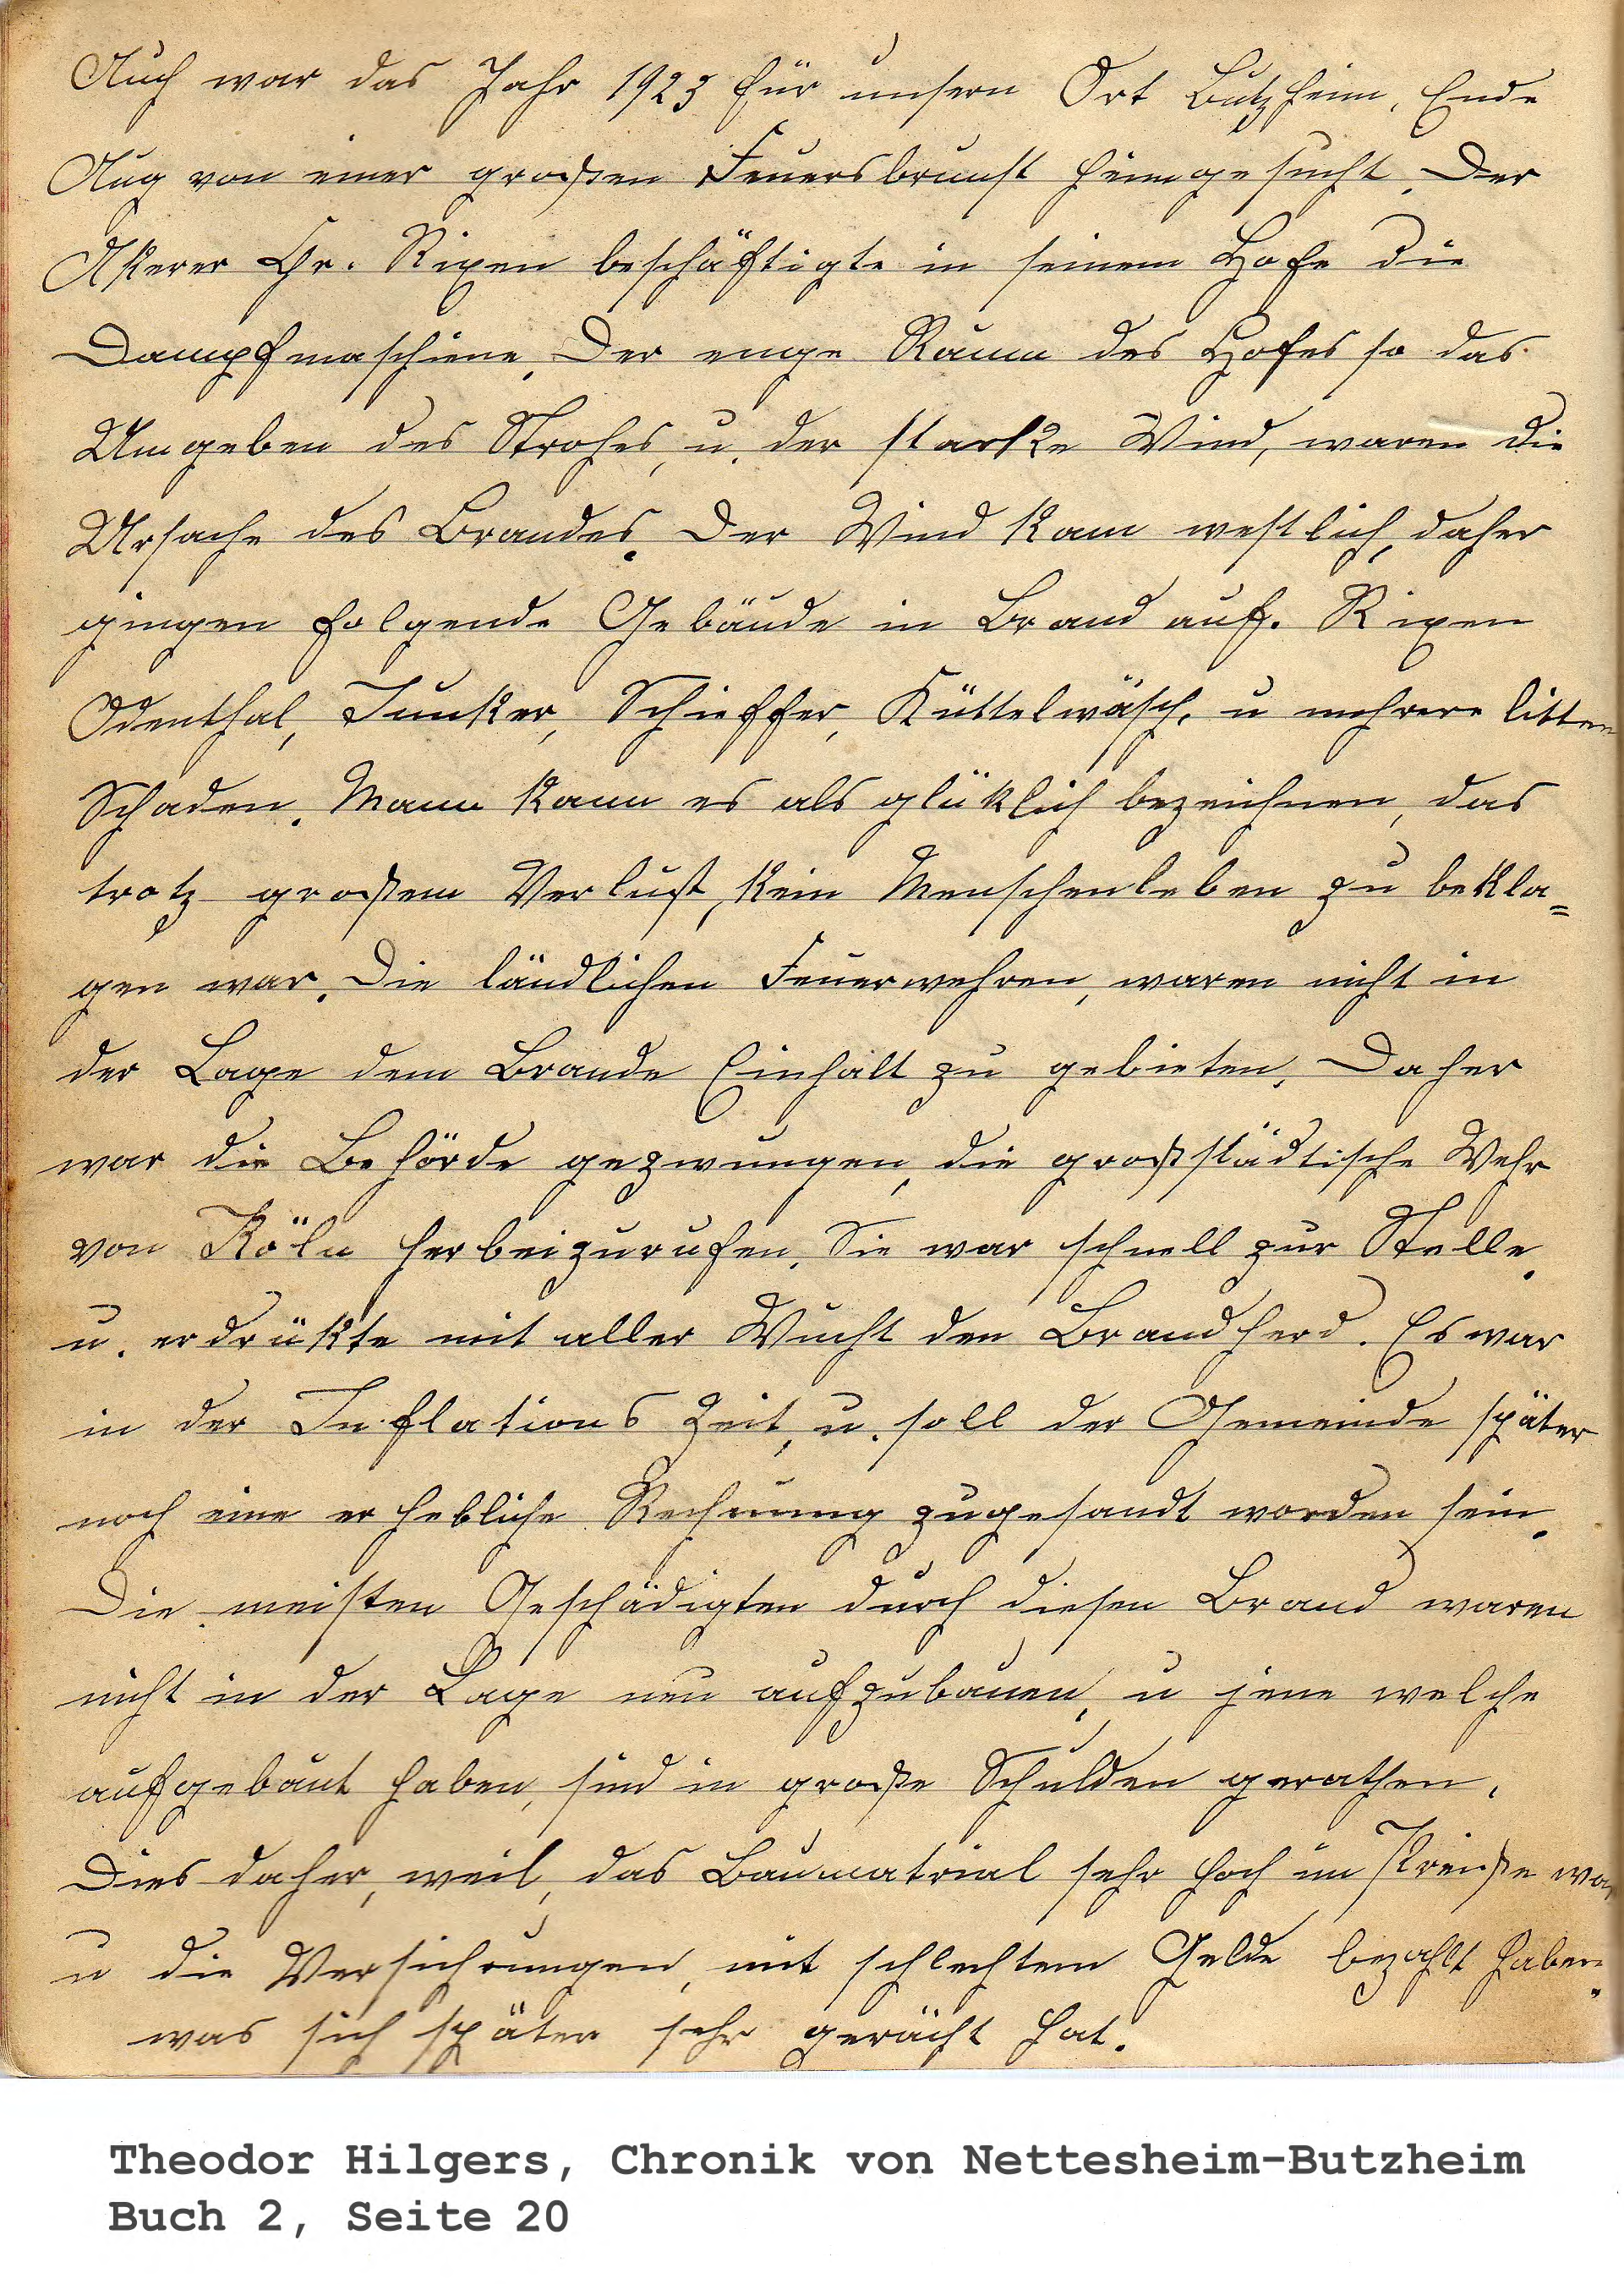 Auch war das Jahr 1923 für unsern Ort Butzheim, Ende
Aug von einer großen Feuersbrunst heimgesucht. Der
Akerer Chr. Rixen beschäftigte in seinem Hofe die
Dampfmaschiene. Der enge Raum des Hofes so das
Umgeben des Strohes, u. der starke Wind, waren die
Ursache des Brandes. Der Wind kam westlich, daher
gingen folgende Gebäude in Brand auf. Rixen
Odenthal, Junker, Schieffer, Küttelwäsch, u mehrere litten
Schaden. Mann kann es als glüklich bezeichnen, das
trotz großem Verlust, kein Menschenleben zu bekla=
gen war. Die ländlichen Feuerwehren, waren nicht in
der Lage dem Brande Einhalt zu gebieten. Daher
war die Behörde gezwungen, die großstädtische Wehr
von Köln herbeizurufen. Sie war schnell zur Stelle.
u. erdrükte mit aller Wucht den Brandherd. Es war
in der Inflations Zeit, u. soll der Gemeinde später
noch eine erhebliche Rechnung zugesandt worden sein.
Die meisten Geschädigten durch diesen Brand waren
nicht in der Lage neu aufzubauen, u jene welche
aufgebaut haben, sind in große Schulden gerathen.
Dies daher, weil, das Baumatrial sehr hoch im Preiße war
u die Versichrungen, mit schlechtem Gelde bezahlt haben.
was sich später sehr gerächt hat.
Theodor Hilgers, Chronik von Nettesheim-Butzheim
Buch 2, Seite 20